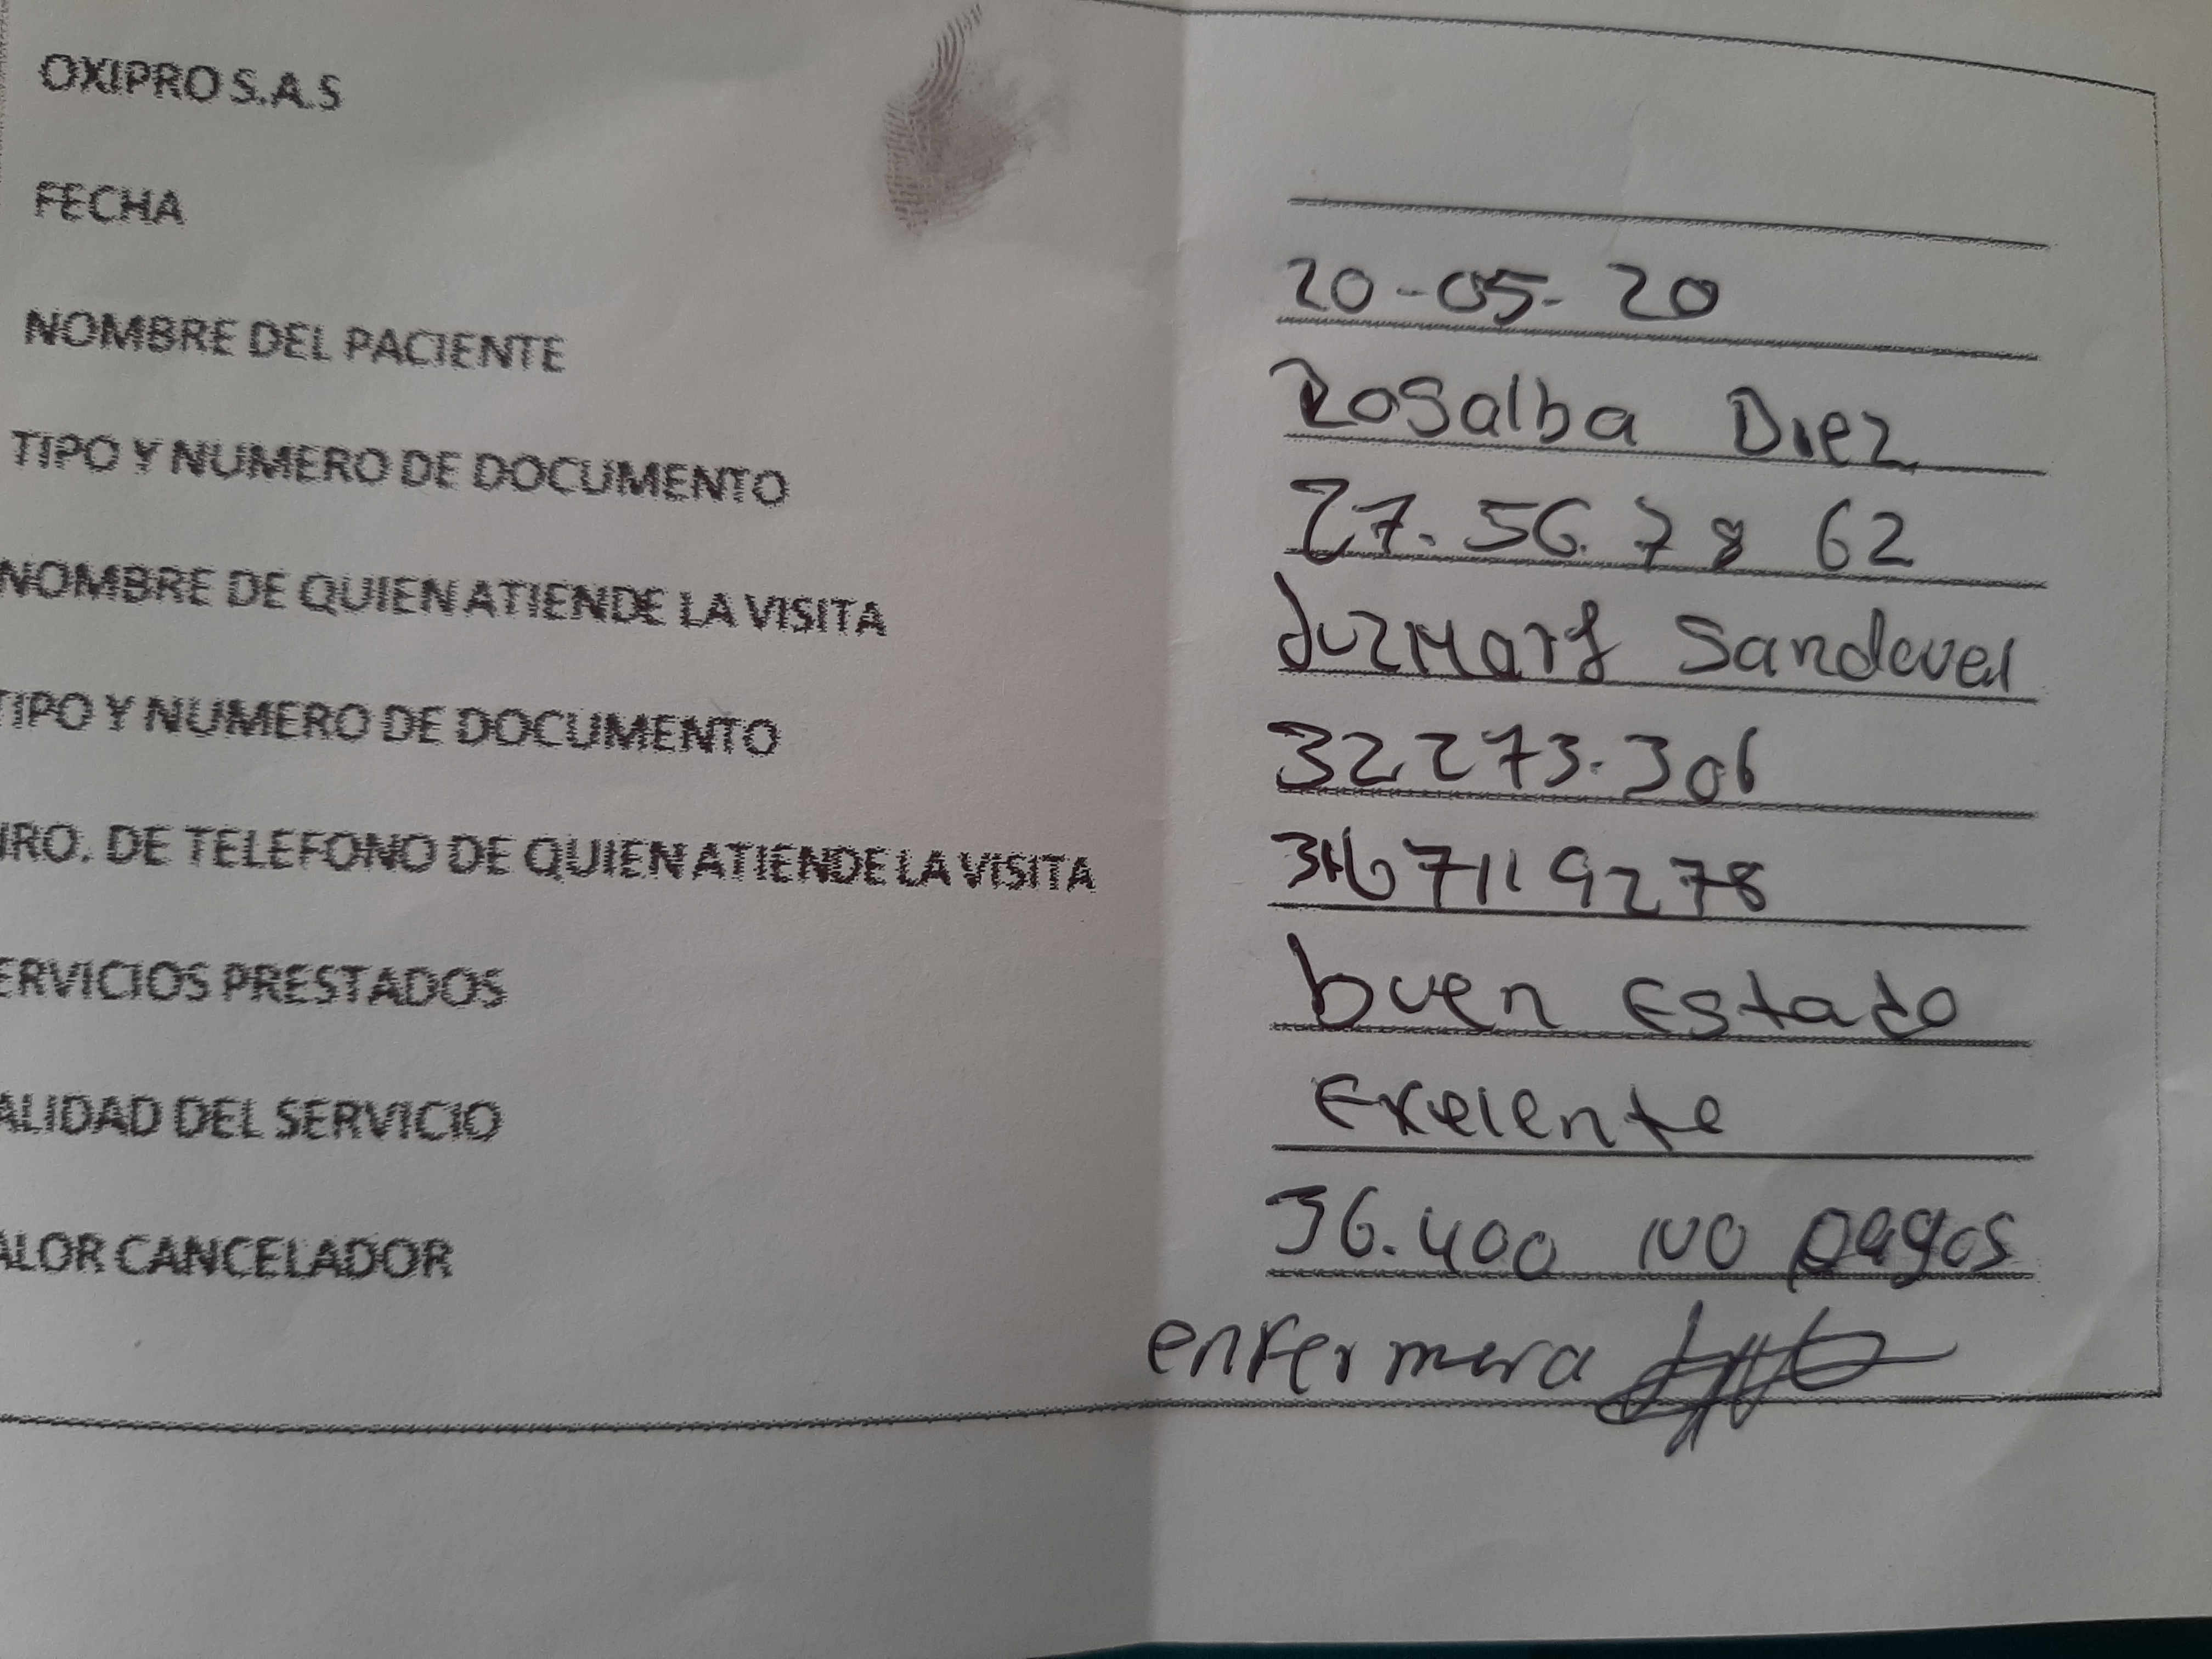 OXIPRO S.A.S
FECHA 20-05-20
NOMBRE DEL PACIENTE Rosalba Diez
TIPO Y NUMERO DE DOCUMENTO 27.56.78 62
NOMBRE DE QUIEN ATIENDE LA VISITA Luzmary Sandovel
TIPO Y NUMERO DE DOCUMENTO 32273.306
NRO. DE TELEFONO DE QUIEN ATIENDE LA VISITA
ERVICIOS PRESTADOS buen Estado
ALIDAD DEL SERVICIO Exelente
ALOR CANCELADOR 36.400 NO pagos
enfermera